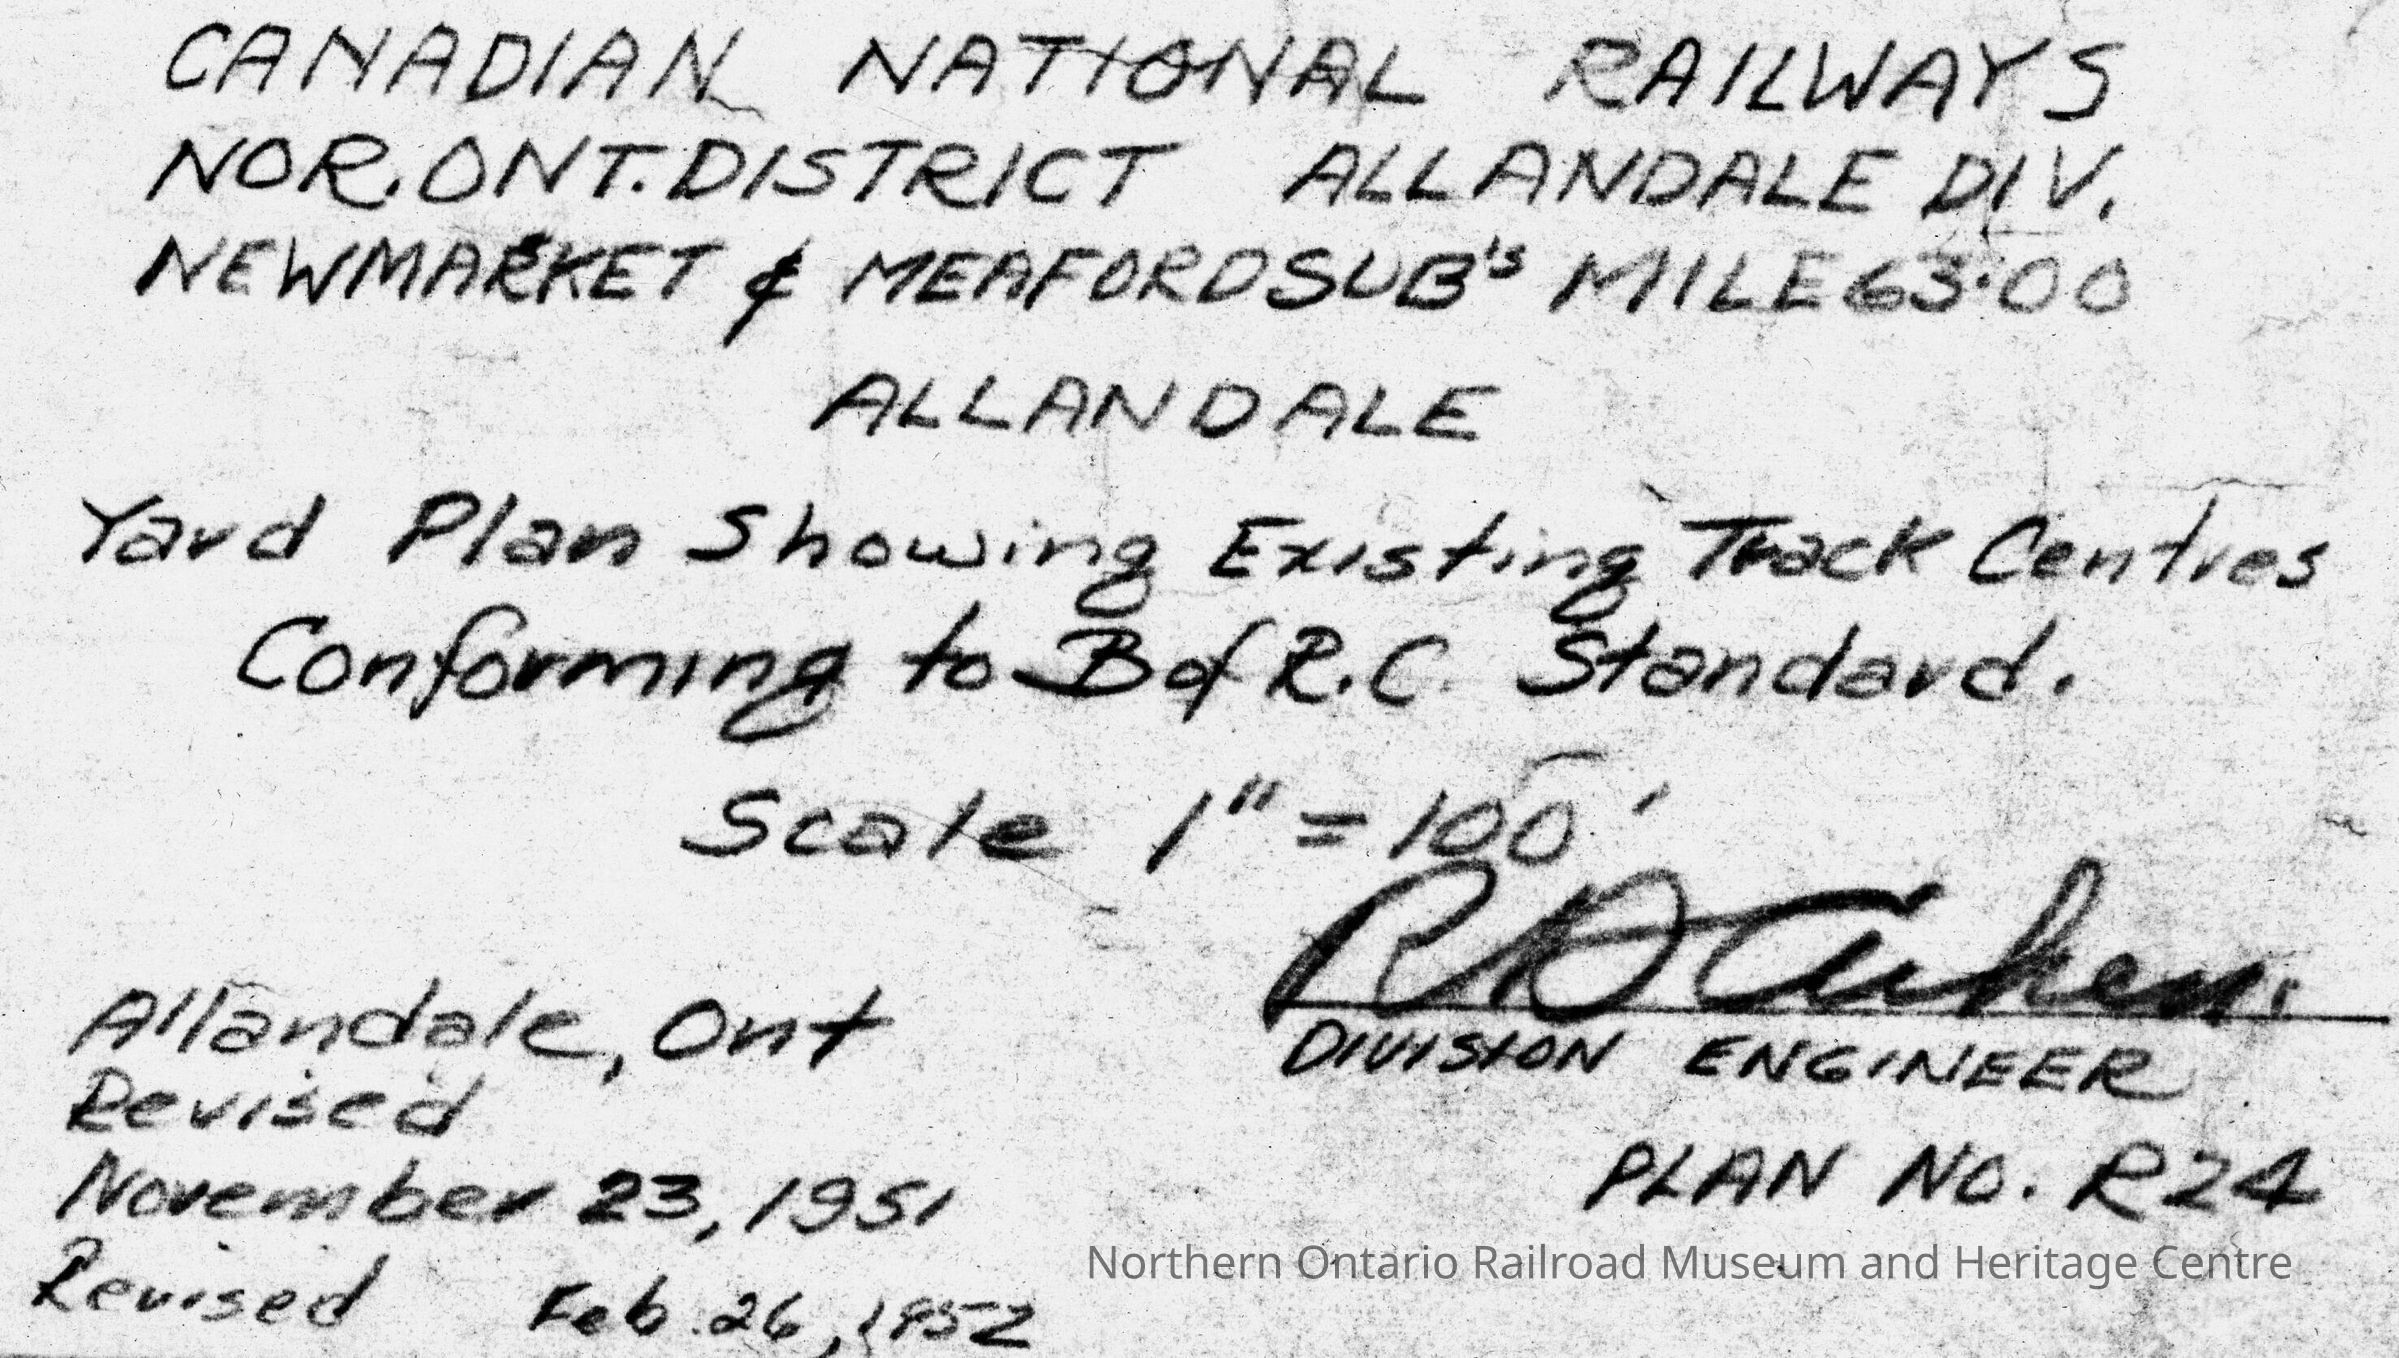 CANADIAN NATIONAL RAILWAYS
NOR. ONT. DISTRICT ALLANDALE DIV.
NEWMARKET & MEAFORD SUB's MILE 63.00
ALLANDALE
Yard Plan Showing Existing Track Centres
Conforming to B of R.C. Standard.
Scale 1" = 100'
R D Aitken.
DIVISION ENGINEER
Allandale, Ont
Revised
November 23, 1951
Revised Feb. 26, 1952
PLAN No. R24
Northern Ontario Railroad Museum and Heritage Centre